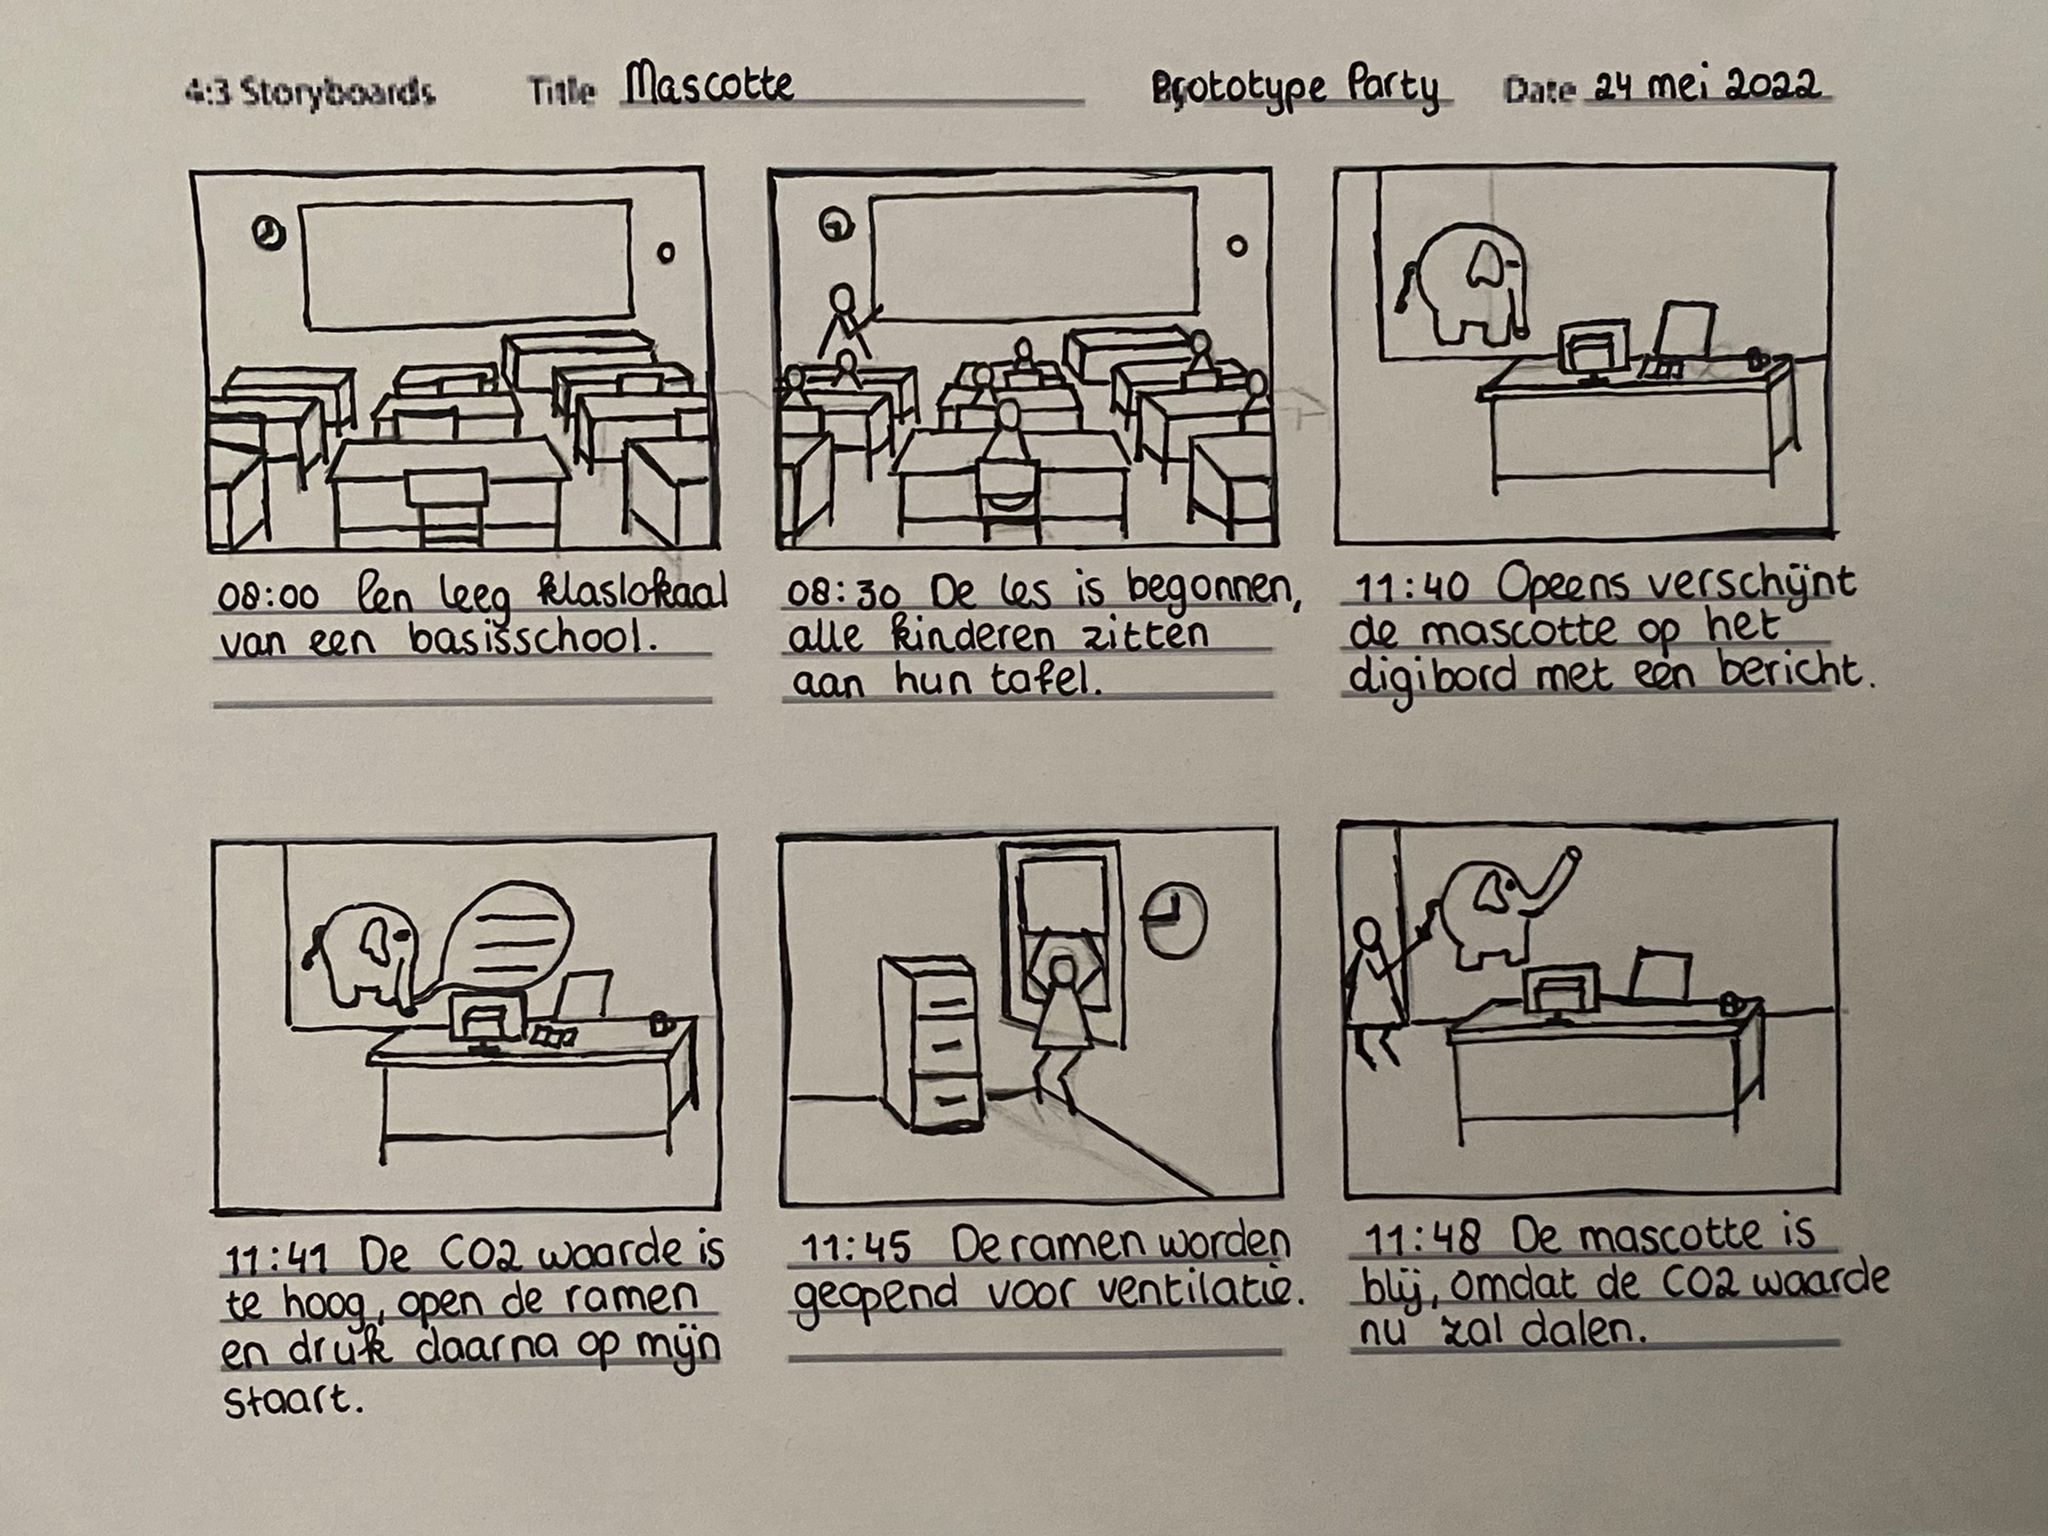 4:3 Storyboards Title Mascotte Prototype Party Date 24 mei 2022
08:00 Een leeg klaslokaal
van een basisschool.
08:30 De les is begonnen,
alle kinderen zitten
aan hun tafel.
11:40 Opeens verschijnt
de mascotte op het
digibord met een bericht.
11:41 De CO2 waarde is
te hoog, open de ramen
en druk daarna op mijn
staart.
11:45 De ramen worden
geopend voor ventilatie.
11:48 De mascotte is
blij, omdat de CO2 waarde
nu zal dalen.